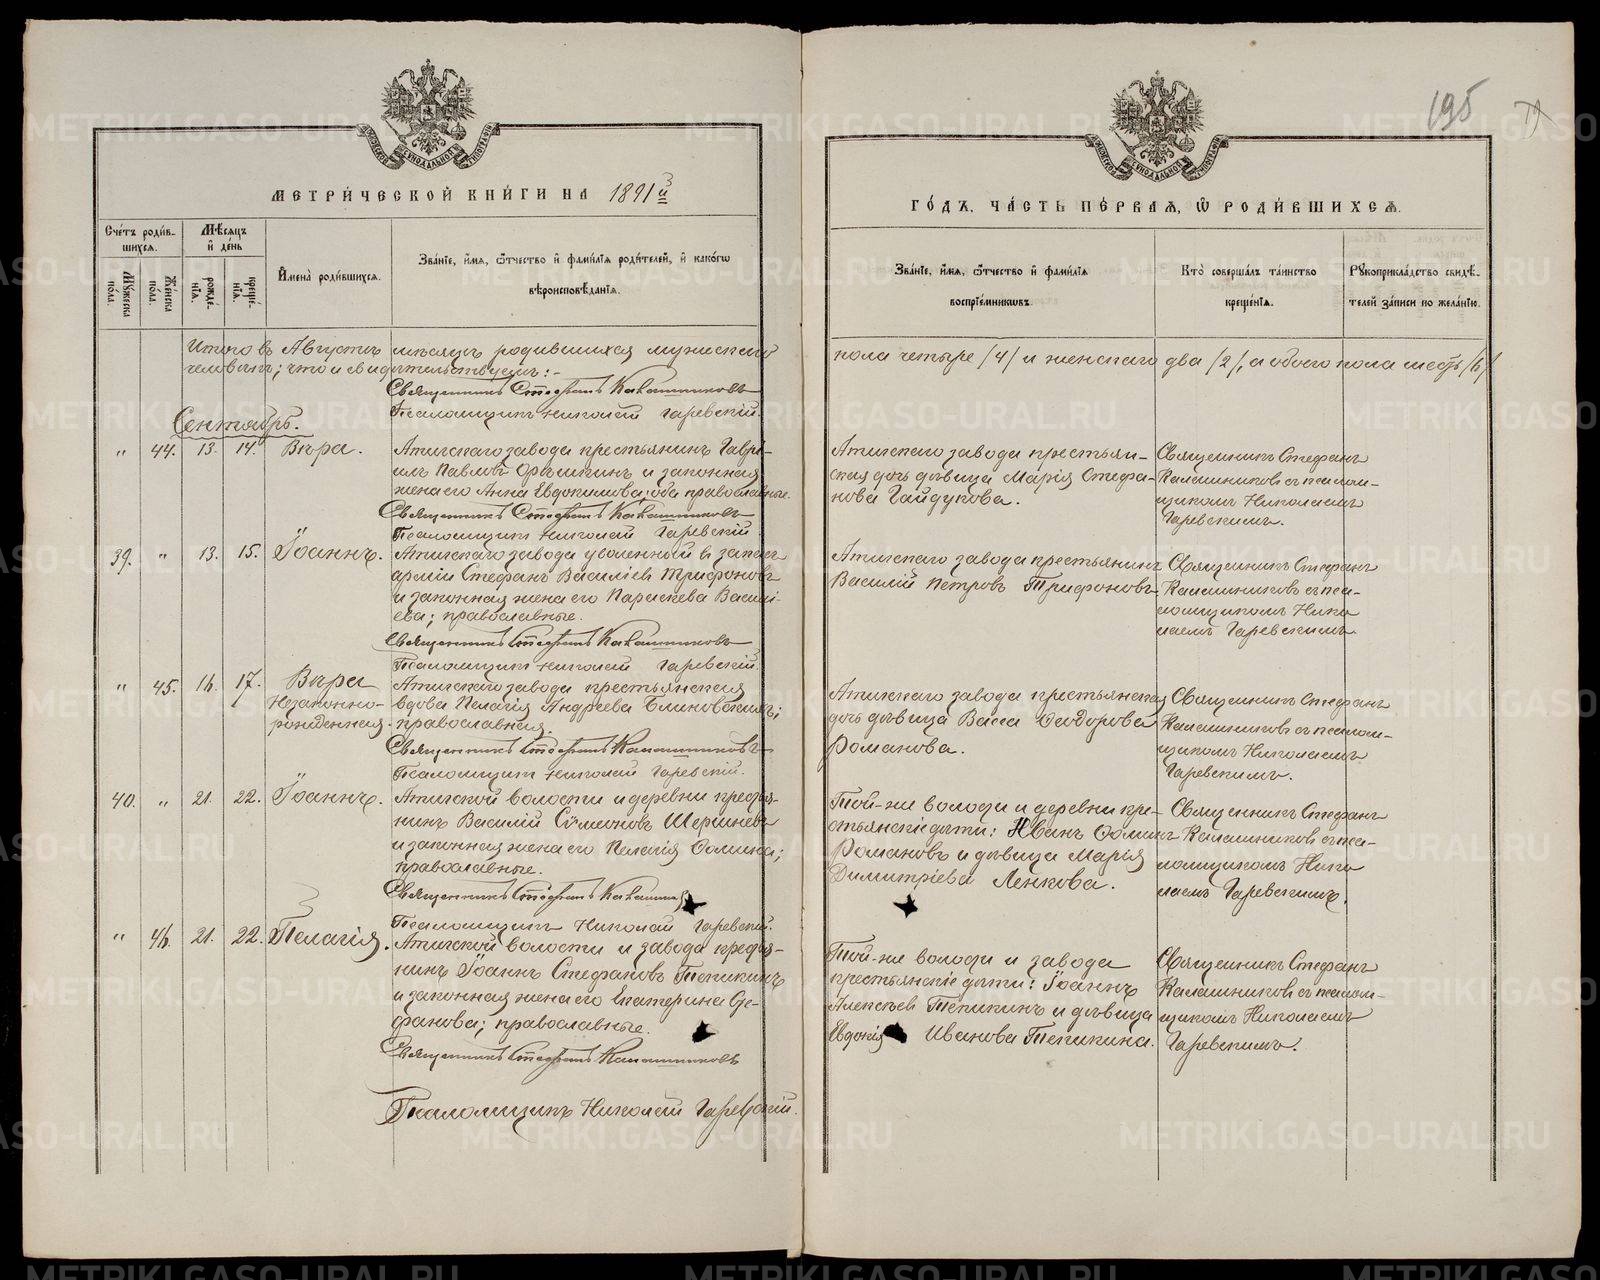 195
МЕТРИ́ЧЕСКОЙ КНИ́ГИ НА 1891й
ГО́ДЪ, ЧА́СТЬ ПЕ́РВАЯ, Ѿ РОДИ́ВШИХСЯ.
Сче́тъ роди́в-
шихся.
Мѣ́сяцъ
и де́нь
Мужеска по́ла.
Же́нска по́ла.
рожде́-
нїя.
креще́-
нїя.
Имена̀ роди́вшихся.
Зва́нїе, и́мя, ѻ́тчество и фами́лїя роди́телей, и како́гѡ
вѣроисповѣ́данїя.
Зва́нїе, и́мя, ѻ́тчество и фами́лїя
воспрїе́мникѡвъ.
Кто̀ соверша́лъ та́инство
креще́нїя.
Рукоприкла́дство свидѣ́-
телей за́писи по жела́нїю.
Итого въ Августѣ мѣсяцѣ родившихся мужескаго
пола четыре /4/ и женскаго два /2/, а обоего пола шесть /6/
человѣкъ; что и свидѣтельствуемъ:-
Священникъ Стефанъ Калашниковъ
Псаломщикъ Николай Гаревскій.
Сентябрь.
" 44. 13. 14. Вѣра.
Атигскаго завода крестьянинъ Гаврі-
илъ Павловъ и законная
жена его Анна Евдокимова; оба православные.
Священникъ Стефанъ Калашниковъ
Псаломщикъ Николай Гаревскій.
Атигскаго завода крестьян-
ская дочь дѣвица Марія Стефа-
нова Гайдукова.
Священникъ Стефанъ
Калашниковъ съ псалом-
щикомъ Николаемъ
Гаревскимъ.
39. " 13. 15. Іоаннъ.
Атигскаго завода уволенный въ запасъ
арміи Стефанъ Василіевъ Трифоновъ
и законная жена его Параскева Васи-
ева; православные.
Священникъ Стефанъ Калашниковъ
Псаломщикъ Николай Гаревскій.
Атигскаго завода крестьянинъ
Василій Петровъ Трифоновъ.
Священникъ Стефанъ
Калашниковъ съ пса-
ломщикомъ Нико
лаемъ Гаревскимъ.
" 45. 16. 17. Вѣра
Незаконно-
рожденная.
Атигскаго завода крестьянская
вдова Пелагія Андреева
православная.
Священникъ Стефанъ Калашниковъ
Псаломщикъ Николай Гаревскій.
Атигскаго завода крестьянская
дочь дѣвица Васса Ѳеодорова
Романова.
Священникъ Стефанъ
Калашниковъ съ псалом-
щикомъ Николаемъ
Гаревскимъ.
40. " 21. 22. Іоаннъ.
Атигской волости и деревни крестья-
нинъ Василій Сѵмеоновъ Шершневъ
и законная жена его Пелагія Ѳомина;
православные.
Священникъ Стефанъ
Псаломщикъ Николай Гаревскій.
Той-же волости и деревни кре-
стьянскіе дѣти: Иванъ Ѳоминъ
Романовъ и дѣвица Марія
Димитріева Ленкова.
Священникъ Стефанъ
Калашниковъ съ пса-
ломщикомъ Нико
лаемъ Гаревскимъ.
" 46. 21. 22. Пелагія.
Атигской волости и завода крестья-
нинъ Іоаннъ Стефановъ Тепикинъ
и законная жена его Екатерина Сте-
фанова; православные.
Священникъ Стефанъ Калашниковъ
Псаломщикъ Николай Гаревскій.
Той-же волости и завода
крестьянскіе дѣти: Іоаннъ
Алексѣевъ Тепикинъ и дѣвица
Евдокія Иванова Тепикина.
Священникъ Стефанъ
Калашниковъ съ псалом-
щикомъ Николаемъ
Гаревскимъ.